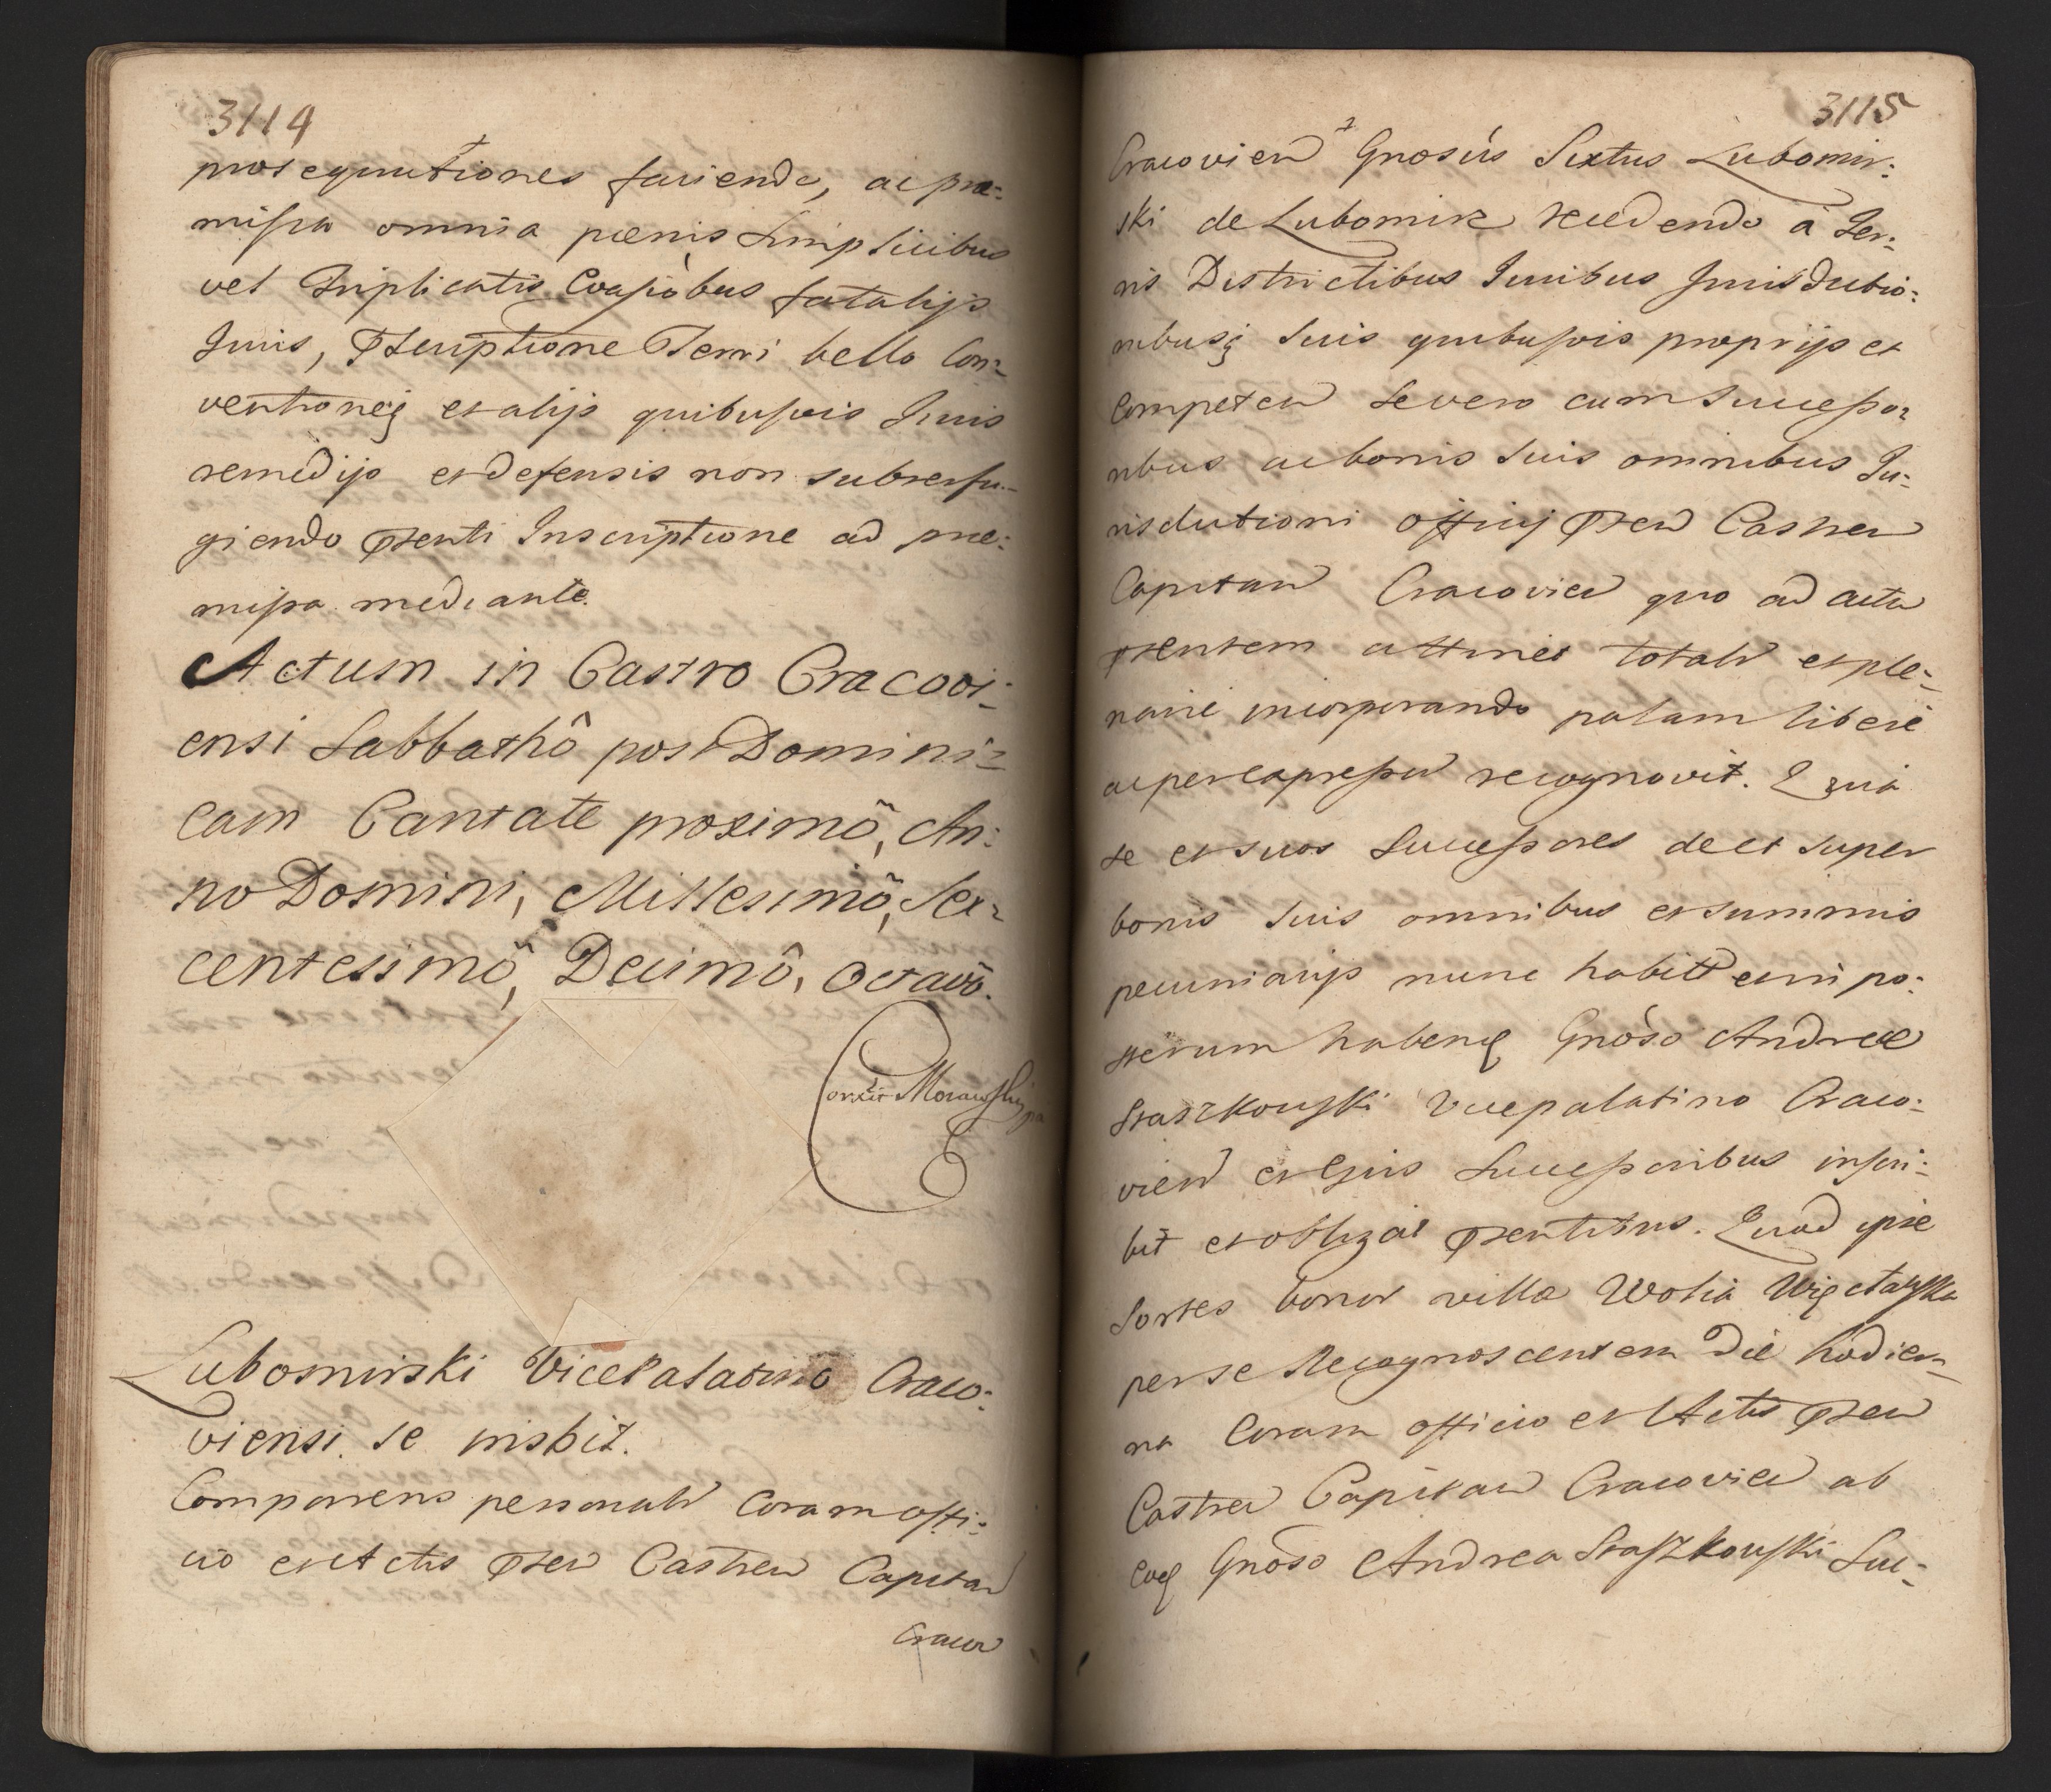 3114
prosequutiones faciendo, ac præ:
missa omnia pœnis simplicibus
vel Triplicatis Evasiobus fatalijs
Juris, Pscriptione Terri bello Con:
ventioneq et alijs quibusvis Juris
remedijs et defensis non subterfu:
giendo Psenti Inscriptione ad præ:
missa mediante.
Actum in Castro Cracovi:
ensi Sabbathô post Domini:
cam Cantate proximô, An:
no Domini, Millesimô, Sex:
centesimô, Decimô, Octavô.
Morawski
Lubomirski VicePalatino Craco:
viensi se insbit.
Comparens personalr Coram offi:
cio et Actis Psen Castren Capitan
Cracov
3115
Cracovien Gnosus Sixtus Lubomir:
ski de Lubomirz recedendo à Ter:
ris Districtibus Juribus Jurisdictio:
nibusq suis quibusvis proprijs et
Competen se vero cum Successo:
ribus ac bonis suis omnibus Ju:
risdictioni officij Psen Castren
Capitan Cracovien quo ad actu
Psentem attinet totalr et ple:
narie incorporando palam libere
ac per expressum recognovit. Quia
se et suos Successores de et super
bonis suis omnibus et summis
pecuniarijs nunc habitt et in po:
sterum haben Gnoso Andreæ
Straszkowski Vicepalatino Craco:
vien et Ejus Successoribus inscri:
bit et obligat Psentibus. Quod ipse
Sortes bonor villæ Wolia Więcławska
per se Recognoscentem Die hodier:
na Coram officio et Actis Psen
Castren Capitan Cracovien ab
eoq Gnoso Andrea Straszkowski Suc: